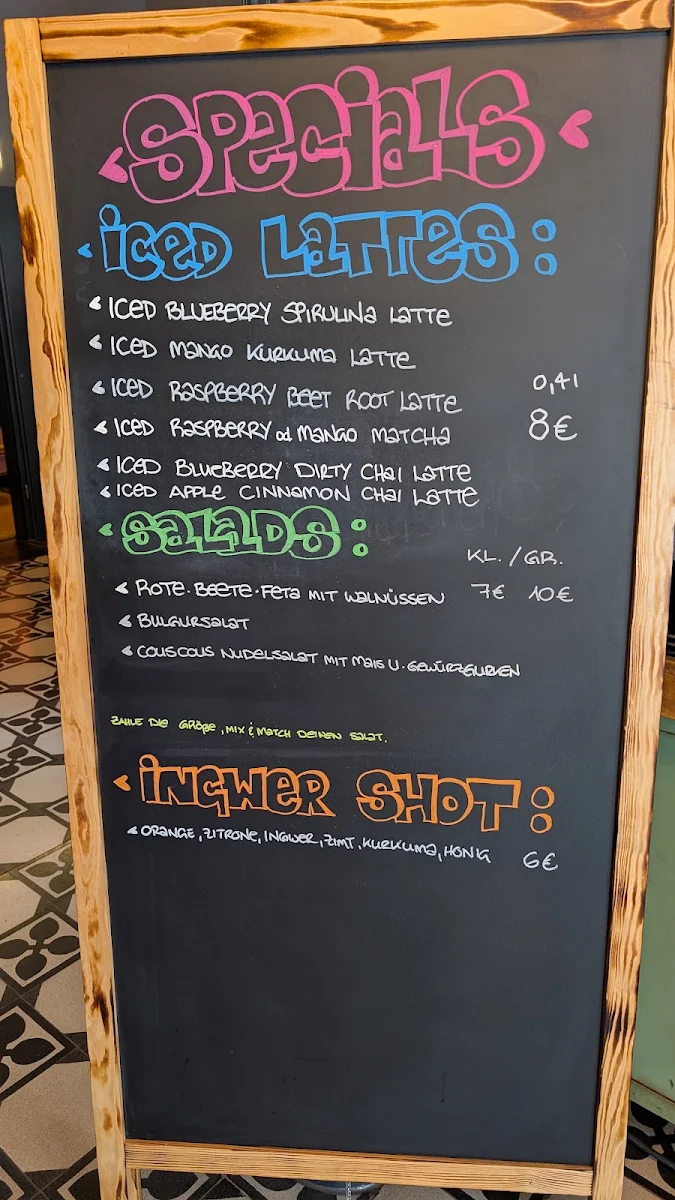 SPECIALS
ICED LATTES:
ICED BLUEBERRY SPIRULINA LATTE
ICED MANGO KURKUMA LATTE
ICED RASPBERRY BEET ROOT LATTE 0,4l
ICED RASPBERRY od MANGO MATCHA 8€
ICED BLUEBERRY DIRTY CHAI LATTE
ICED APPLE CINNAMON CHAI LATTE
SALADS:
KL. / GR.
ROTE·BEETE·FETA MIT WALNÜSSEN 7€ 10€
BULGURSALAT
COUSCOUS NUDELSALAT MIT MAIS U. GEWÜRZGURKEN
ZAHLE DIE GRÖßE, MIX & MATCH DEINEN SALAT.
INGWER SHOT:
ORANGE, ZITRONE, INGWER, ZIMT, KURKUMA, HONIG 6€